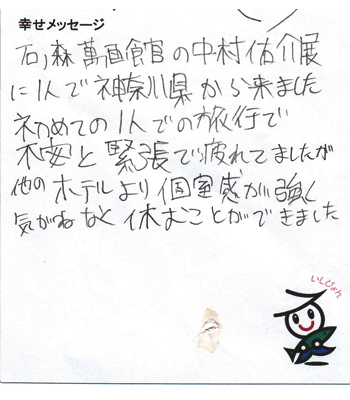 幸せメッセージ
石ノ森萬画館の中村佑介展
に1人で神奈川県から来ました
初めての1人での旅行で
不安と緊張で疲れてましたが
他のホテルより個室感が強く
気がねなく休むことができました
いしぴょん